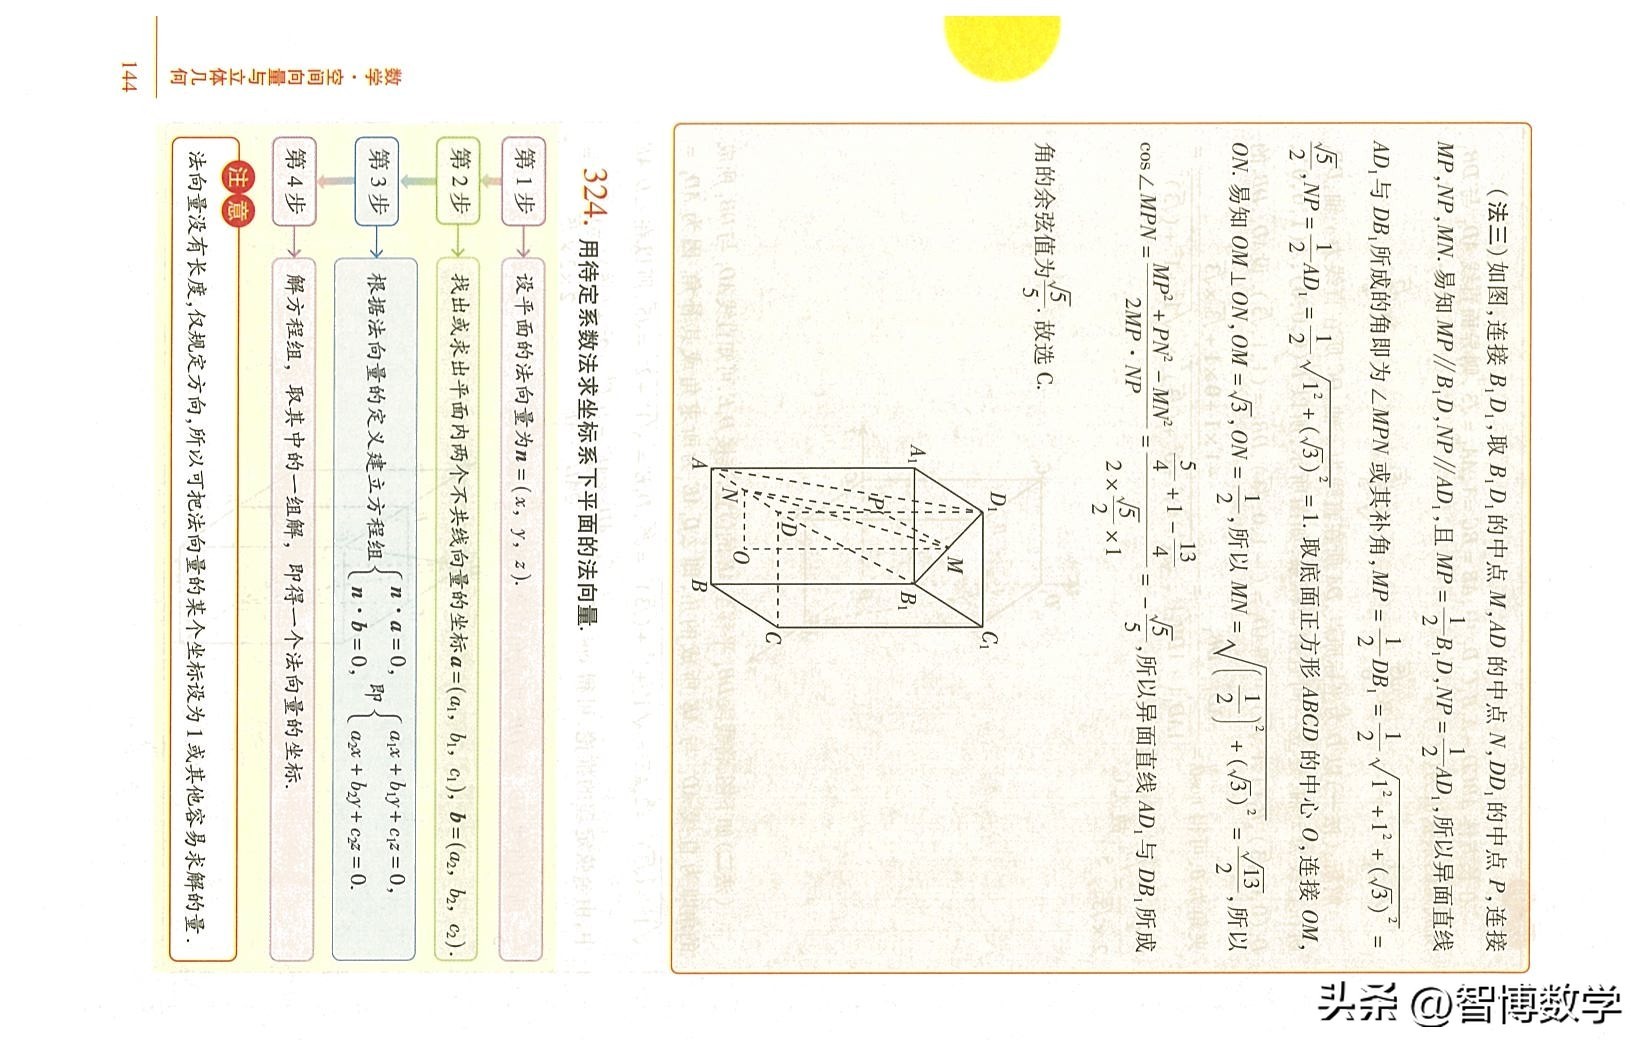 (法三)如图,连接 B₁D₁,取 B₁D₁的中点 M,AD 的中点 N,DD₁的中点 P,连接
MP,NP,MN. 易知 MP∥B₁D,NP∥AD₁,且 MP=1/2 B₁D,NP=1/2 AD₁,所以异面直线
AD₁与 DB₁所成的角即为∠MPN 或其补角,MP=1/2 DB₁=1/2 √(1²+1²+(√3)²)=
√5/2,NP=1/2 AD₁=1/2 √(1²+(√3)²)=1. 取底面正方形 ABCD 的中心 O,连接 OM,
ON. 易知 OM⊥ON,OM=√3,ON=1/2,所以 MN=√((1/2)²+(√3)²)=√13/2,所以
cos∠MPN=(MP²+PN²-MN²)/(2MP·NP)=(5/4+1-13/4)/(2×√5/2×1)=-√5/5,所以异面直线 AD₁与 DB₁所成
角的余弦值为√5/5. 故选 C.
D₁
C₁
A₁
M
B₁
P
D
C
N
O
A
B
324. 用待定系数法求坐标系下平面的法向量.
第1步
设平面的法向量为n=(x, y, z).
第2步
找出或求出平面内两个不共线向量的坐标a=(a₁, b₁, c₁), b=(a₂, b₂, c₂).
第3步
根据法向量的定义建立方程组{n·a=0, n·b=0, 即{a₁x+b₁y+c₁z=0, a₂x+b₂y+c₂z=0.
第4步
解方程组, 取其中的一组解, 即得一个法向量的坐标.
注意
法向量没有长度,仅规定方向,所以可把法向量的某个坐标设为1或其他容易求解的量.
数学·空间向量与立体几何
144
头条 @智博数学